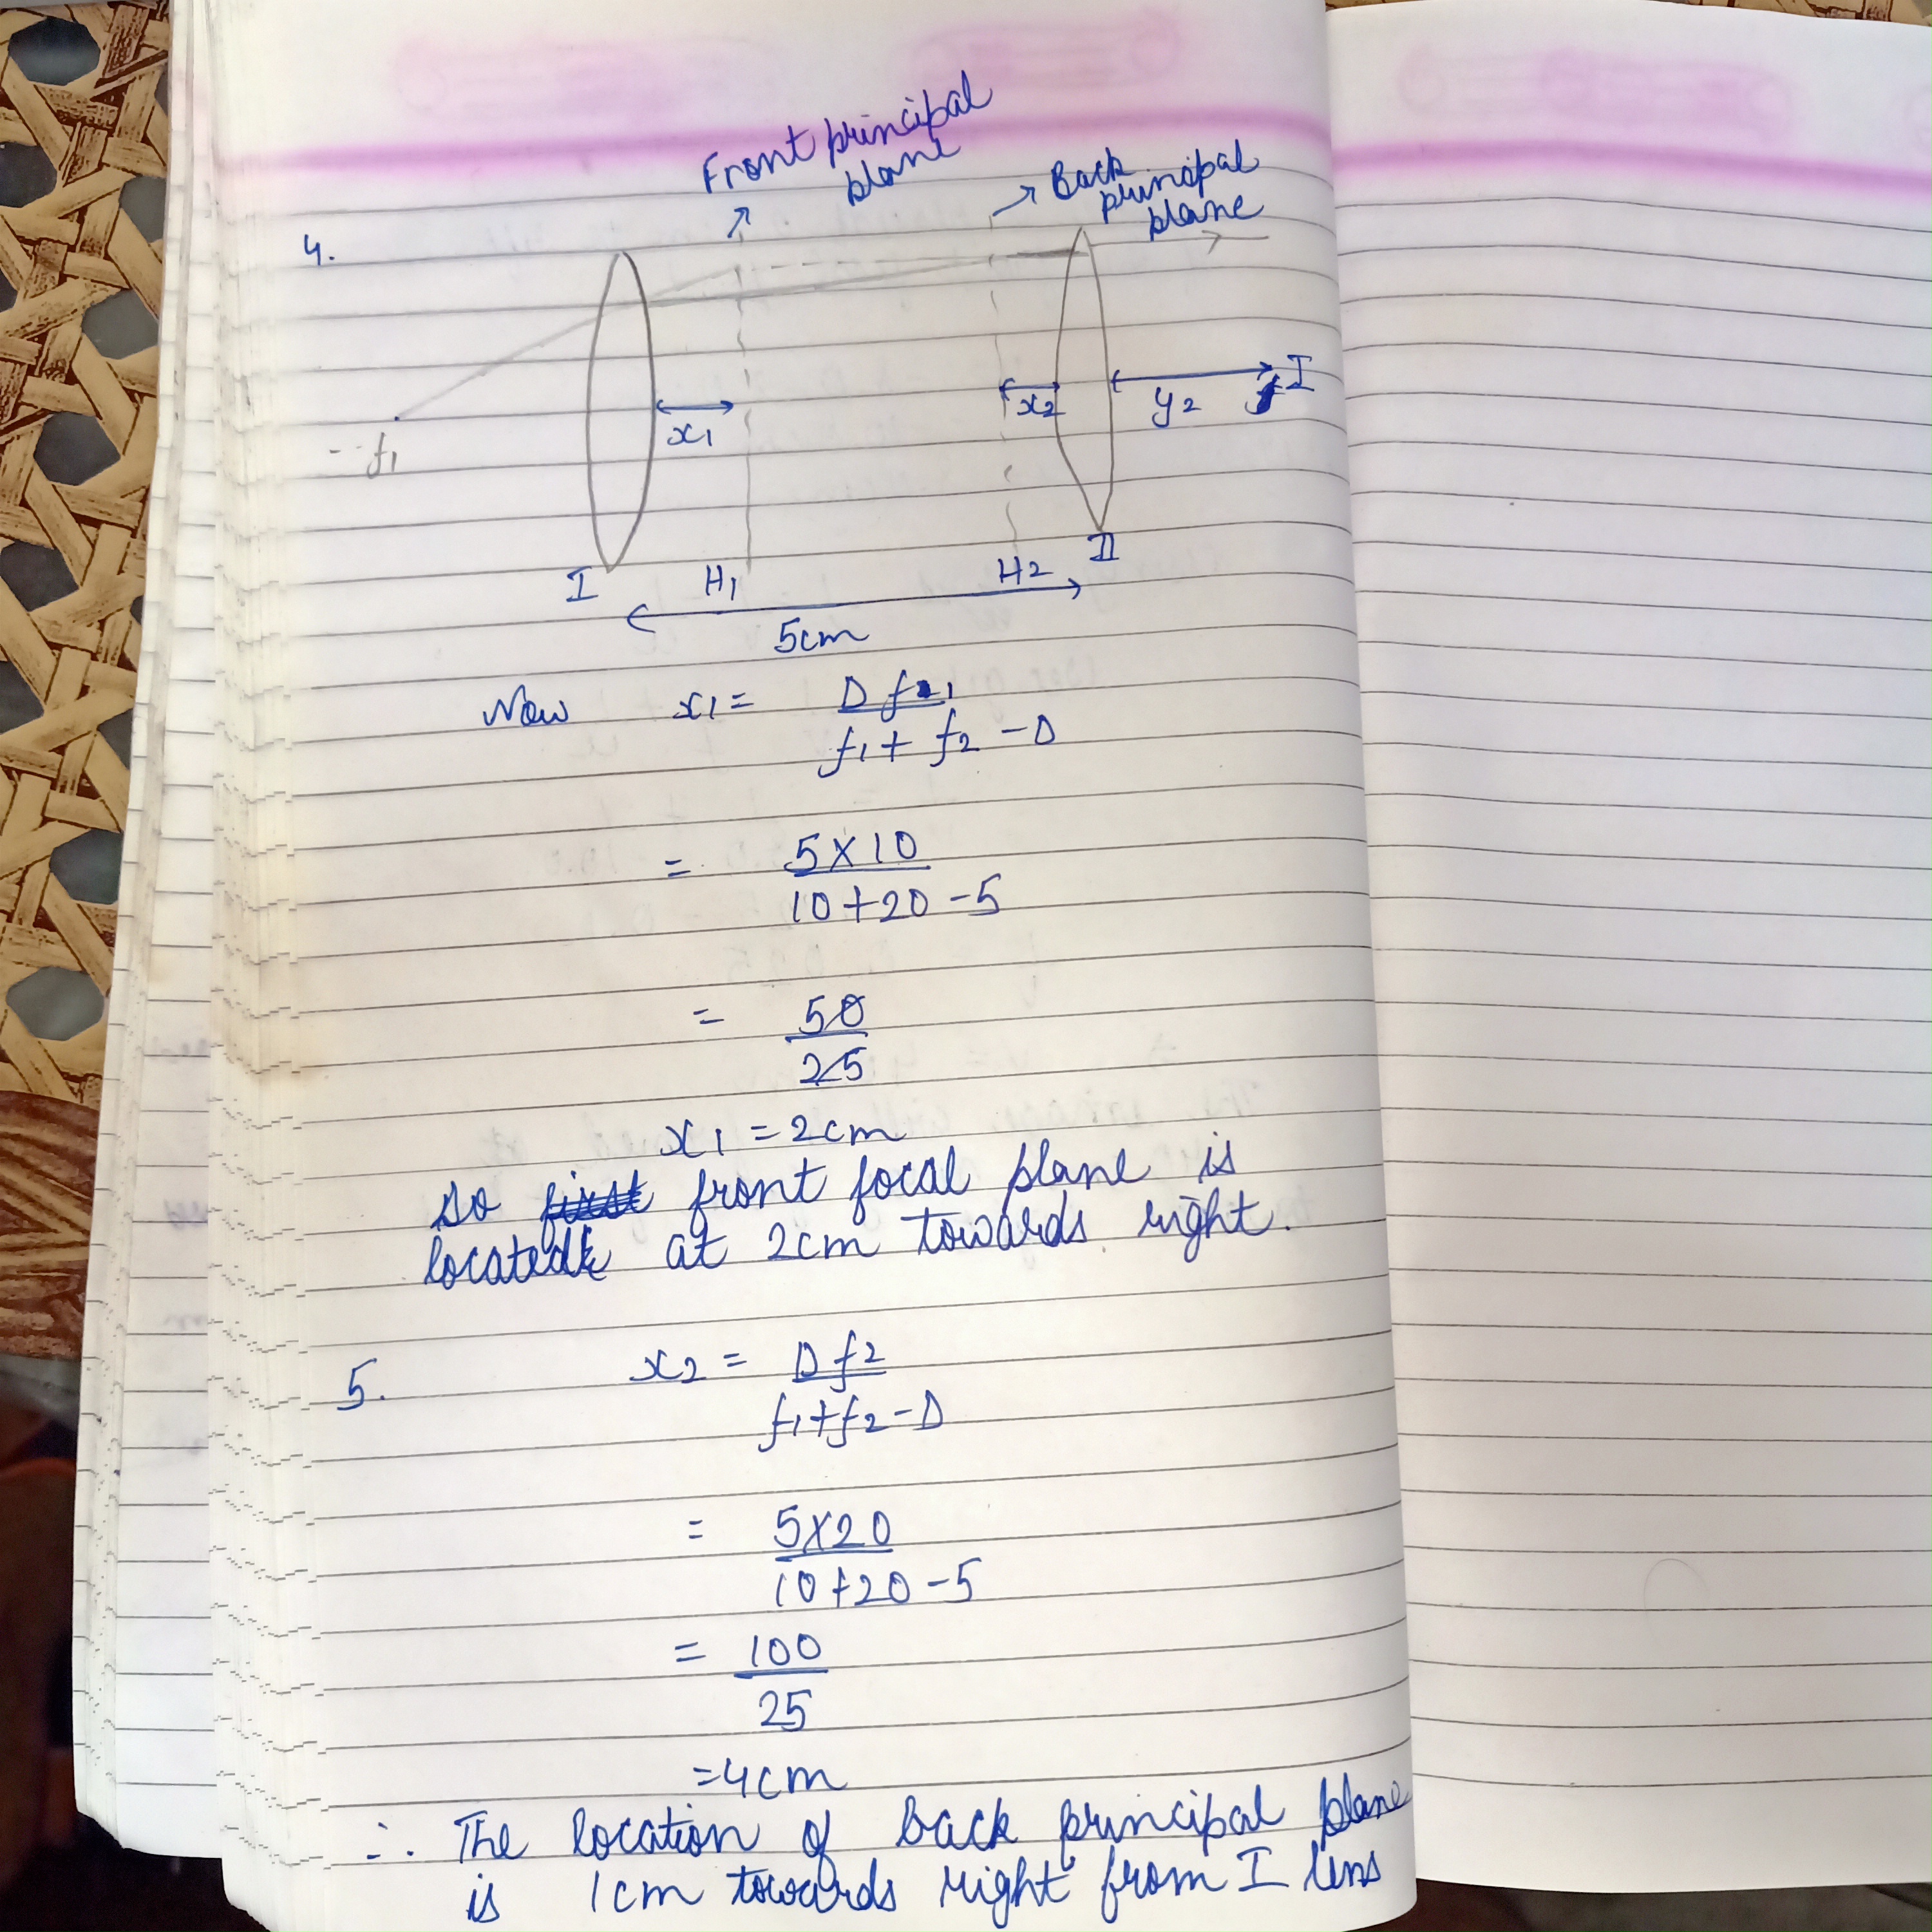 Front principal
plane
Back
principal
plane
4.
I
x2
y2
x1
-f1
II
I
H1
H2
5cm
Now x1 = D f1
f1 + f2 - D
= 5 X 10
10 + 20 - 5
= 50
25
x1 = 2cm
So first front focal plane is
located at 2cm towards right.
5. x2 = D f2
f1 + f2 - D
= 5 X 20
10 + 20 - 5
= 100
25
= 4cm
∴ The location of back principal plane
is 1cm towards right from I lens